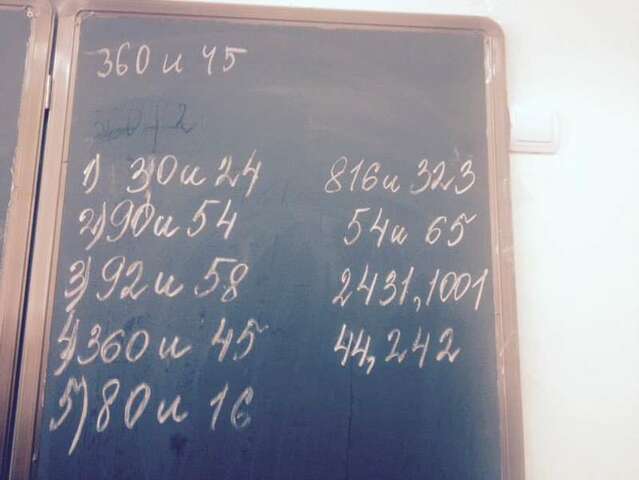 360 и 45
1) 30 и 24
2) 90 и 54
3) 92 и 58
4) 360 и 45
5) 80 и 16
816 и 323
54 и 65
2431, 1001
44, 242